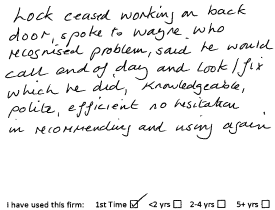 Lock ceased working on back
door, spoke to wayne who
recognised problem, said he would
call end of day and look/fix
which he did, Knowledgeable,
polite, efficient no hesitation
in recommending and using again
I have used this firm: 1st Time ☑ <2 yrs ☐ 2-4 yrs ☐ 5+ yrs ☐